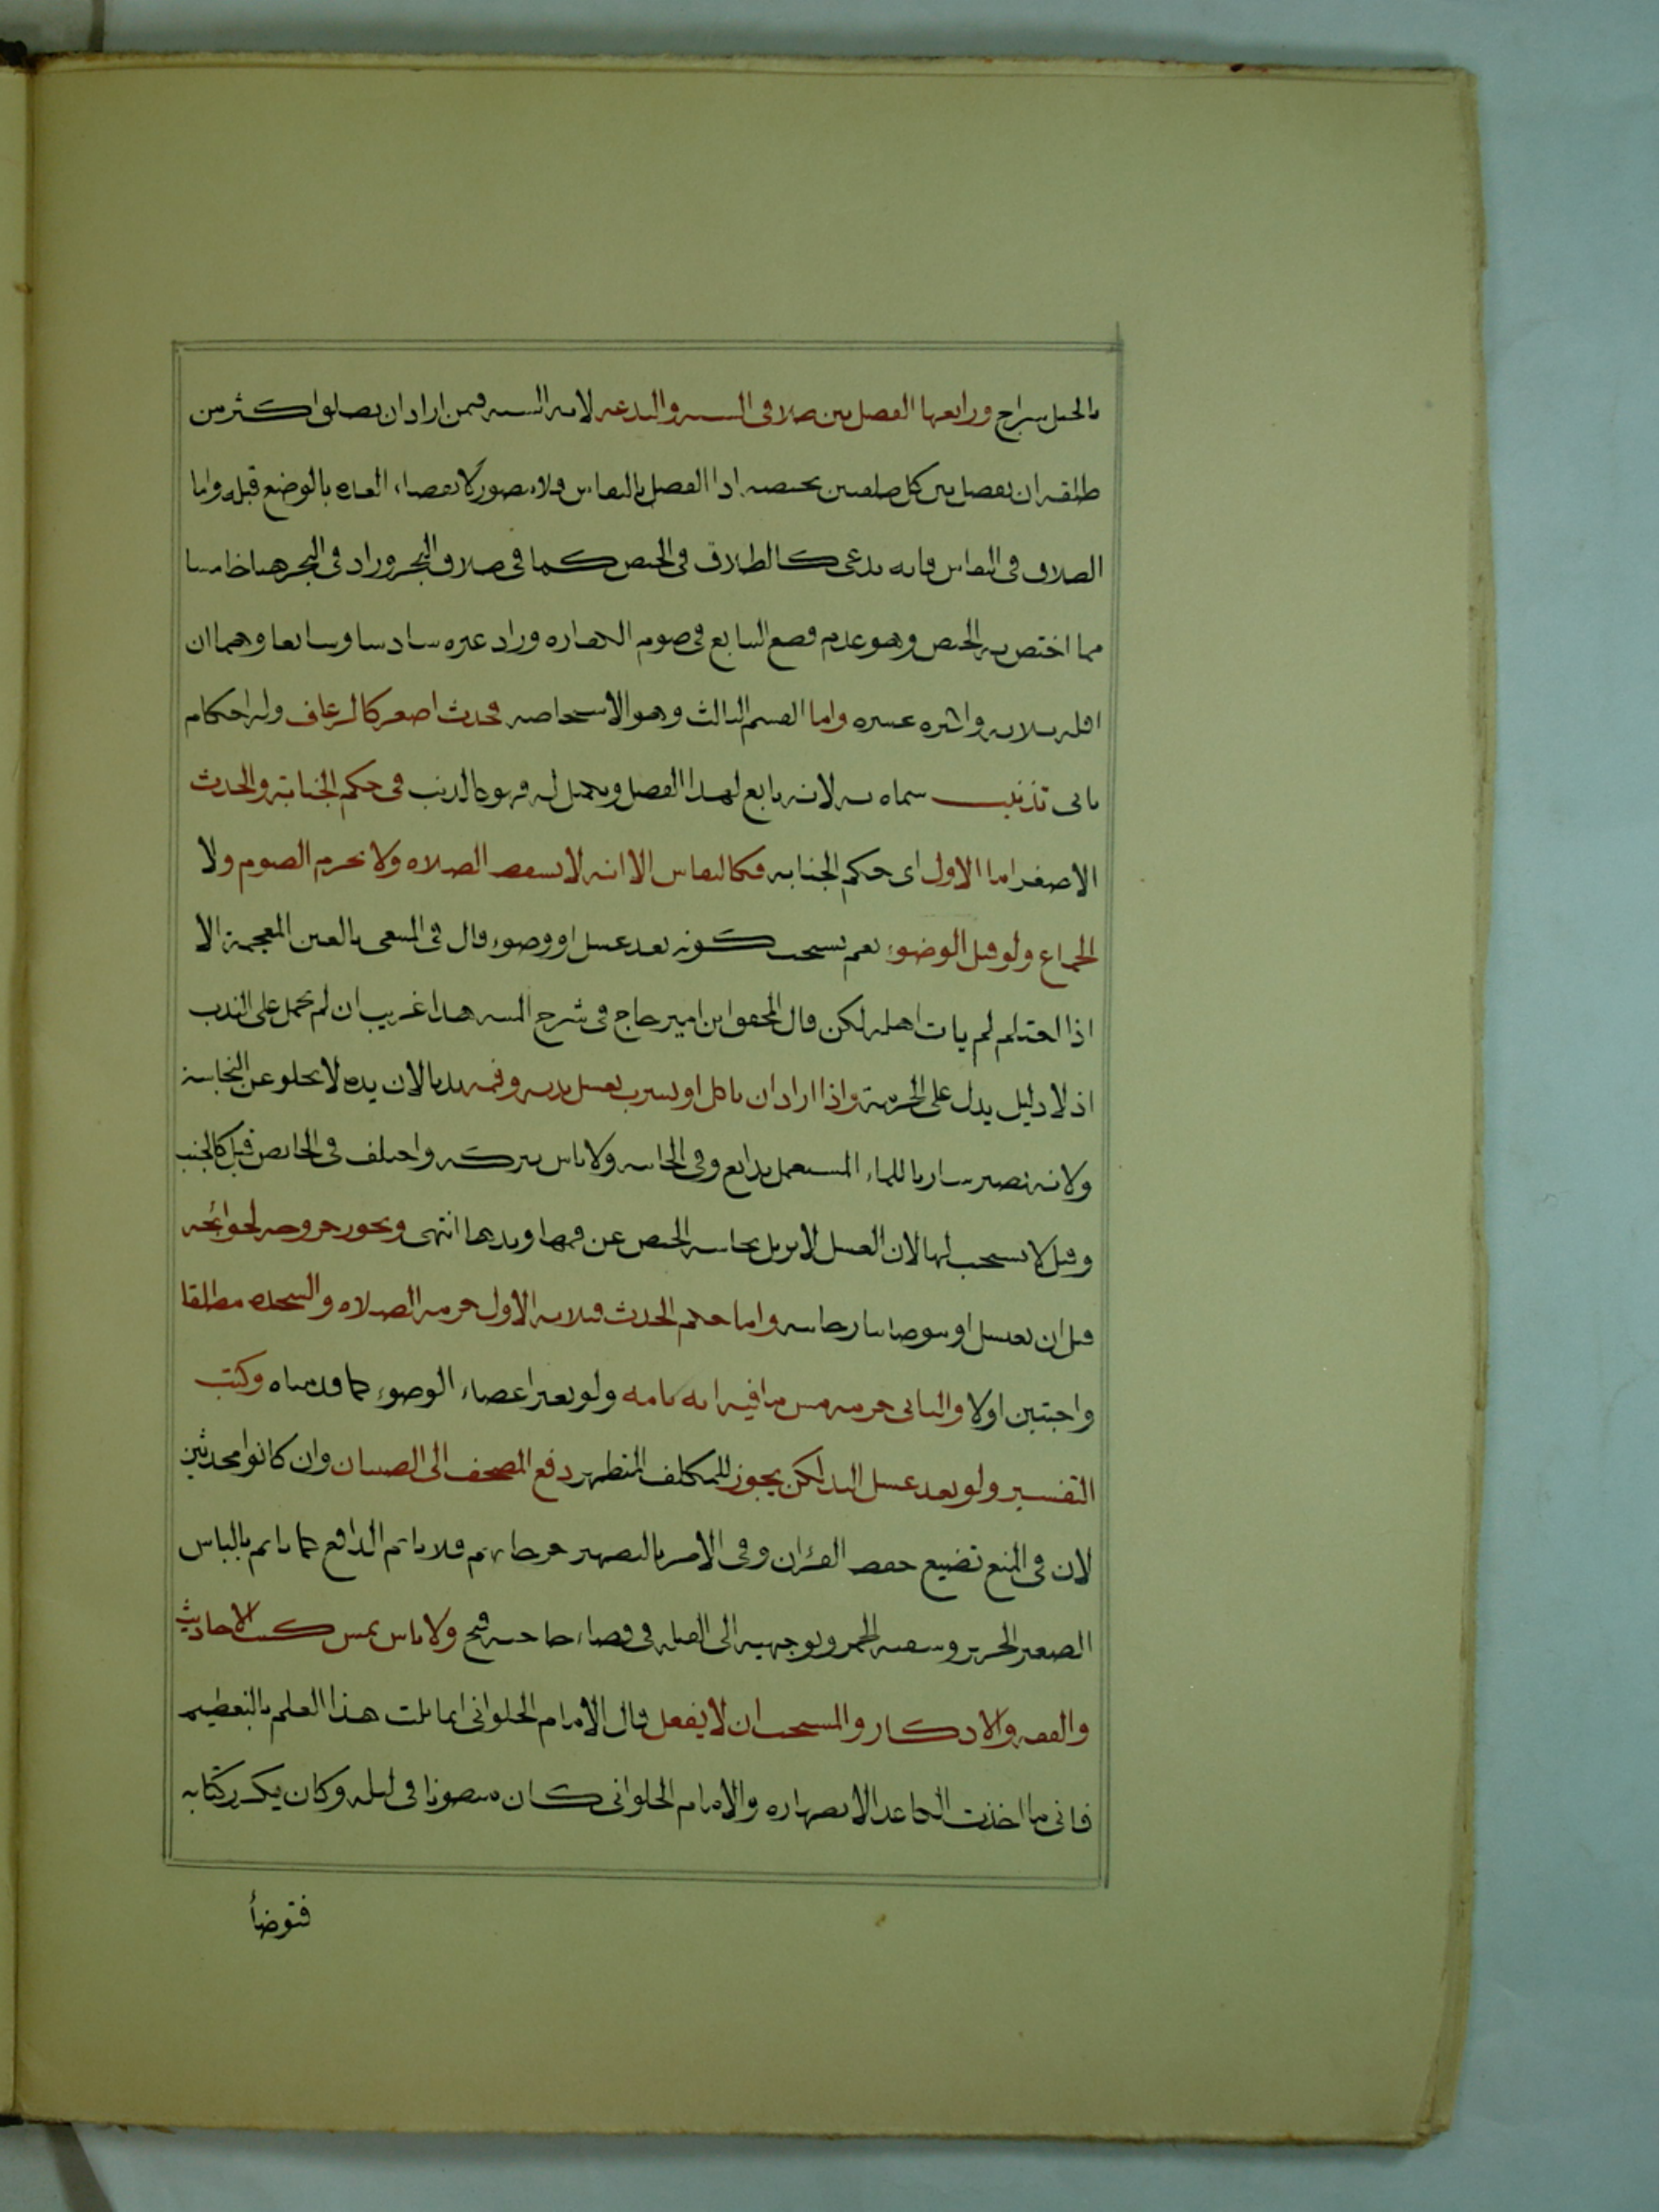 بالحبل سراج ورابعها الفصل بين طلاقى السنه والبدعه لانه السنه فيمن اراد ان يطلق اكثر من
طلقه ان يفصل بين كل طلقتين بحيضه اذا الفصل بالنفاس فلا يتصور لانقضاء العده بالوضع قبله واما
الطلاق فى النفاس فانه بدعى كالطلاق فى الحيض كما فى طلاق البحر وزاد فى البحر هنا خامسا
مما اختص به الحيض وهو عدم قطع التتابع فى صوم الكفاره وزاد غيره سادسا وسابعا وهما ان
اقله ثلاثه واكثره عشره واما القسم الثالث وهو الاستحاضه فحدث اصغر كالرعاف وله احكام
ياتى تذنيب سماه به لانه تابع لهذا الفصل ومكمل له فهو كالذنب فى حكم الجنابة والحدث
الاصغر اما الاول اى حكم الجنابه فكالنفاس الا انه لا يسقط الصلاه ولا يحرم الصوم ولا
الجماع ولو قبل الوضوء نعم يستحب كونه بعد غسل او وضوء قال فى المبتغى بالغين المعجمة الا
اذا احتلم لم يات اهله لكن قال المحقق ابن امير حاج فى شرح المنيه هذا غريب ان لم يحمل على الندب
اذ لا دليل يدل على الحرمة واذا اراد ان ياكل او يشرب يغسل يديه وفمه ندبا لان يده لا تخلو عن النجاسة
ولانه يصير شاربا للماء المستعمل بدايع وفى الخانيه ولا باس بتركه واختلف فى الحائض قيل كالجنب
وقيل لا يستحب لها لان الغسل لا يزيل نجاسه الحيض عن فمها ويدها انتهى ويجوز خروجه لحوائجه
قبل ان يغتسل او يتوضا تتارخانيه واما حكم الحدث فثلاثه الاول حرمه الصلاه والسجده مطلقا
واجبتين اولا والثانى حرمه مس ما فيه ايه تامه ولو بغير اعضاء الوضوء كما قدمناه وكتب
التفسير ولو بعد غسل اليد لكن يجوز للمكلف المتطهر دفع المصحف الى الصبيان وان كانوا محدثين
لان فى المنع تضييع حفظ القرٰان وفى الامر بالتطهير حرجا بهم فلا ياثم الدافع كما ياثم بالباس
الصغير الحرير وسقيه الخمر وتوجهيه الى القبله فى قضاء حاجته فتح ولا باس بمس كتب الاحاديث
والفقه والاذكار والمستحب ان لا يفعل قال الامام الحلوانى انما نلت هذا العلم بالتعظيم
فانى ما اخذت الكاغد الا بطهاره والامام الحلوانى كان مبطونا فى ليله وكان يكرر كتابه
فتوضأ